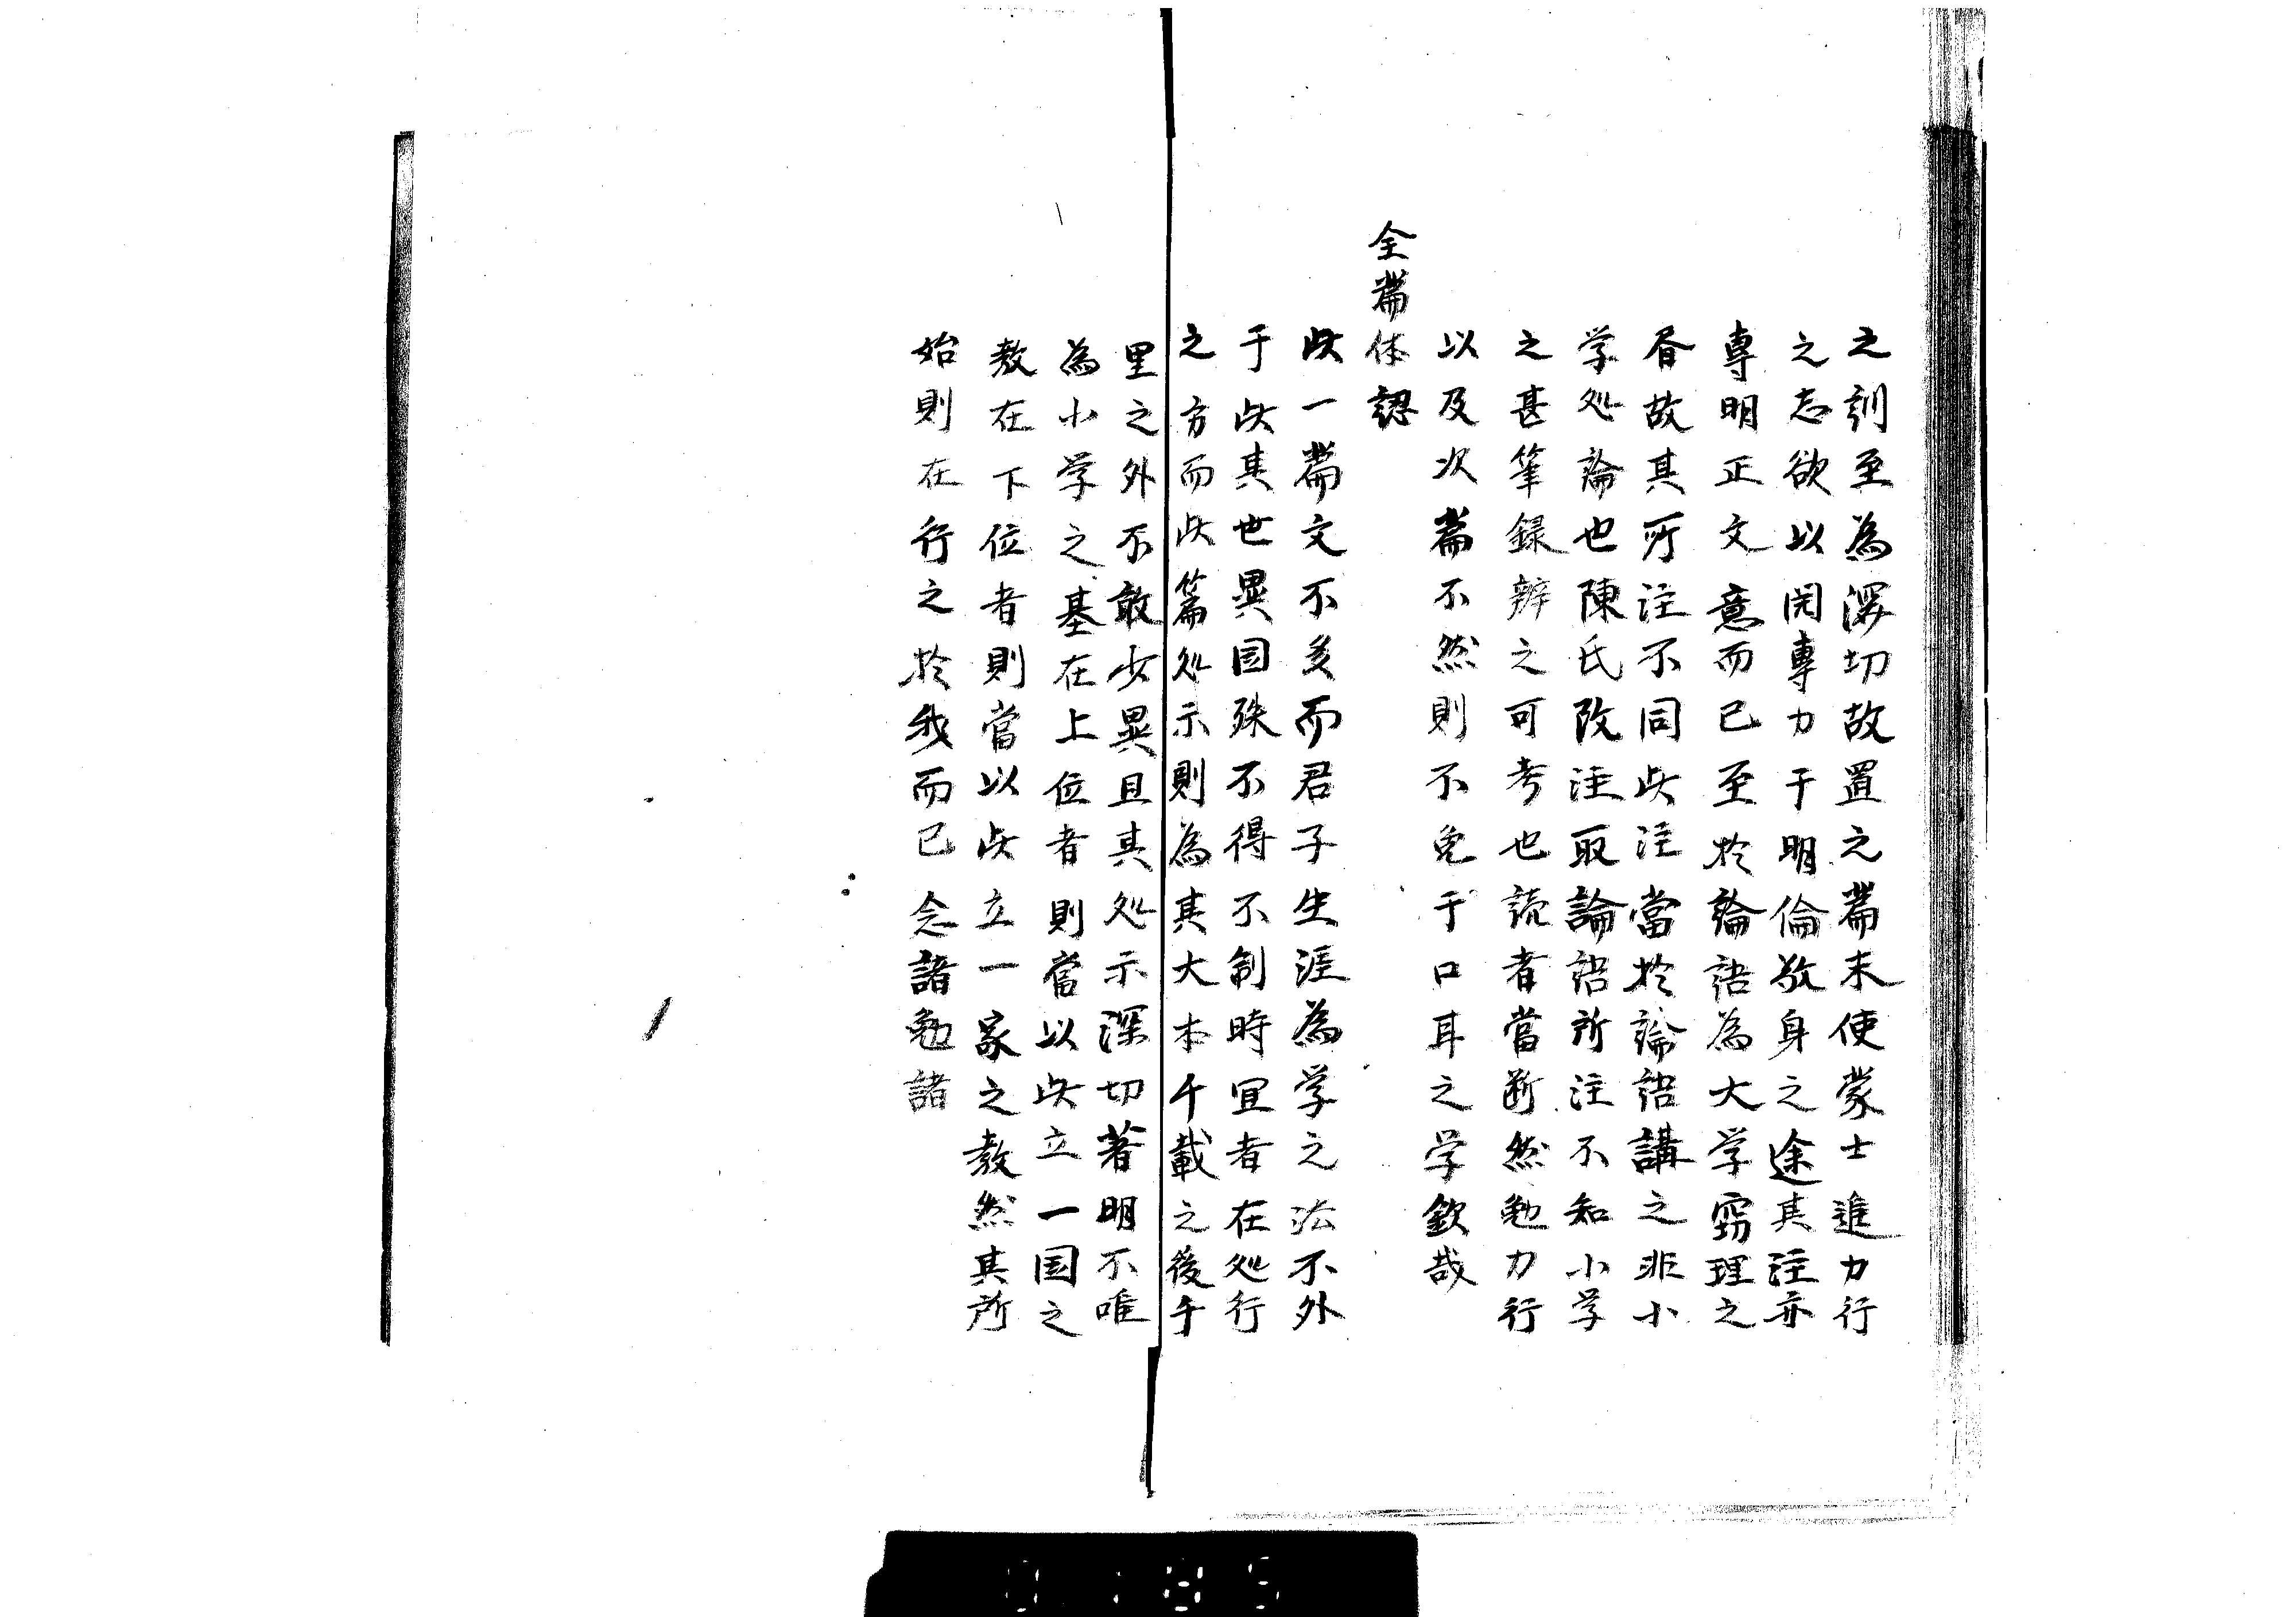 之訓至為深切故置之篇末使蒙士進力行
之志欲以開專力于明倫敬身之途其注亦
專明正文意而已至於論語為大学窮理之
眉故其所注不同此注當於論語講之非小
学処論也陳氏改注取論語所注不知小学
之甚筆録辨之可考也読者當断然勉力行
以及次篇不然則不免于口耳之学欽哉
全篇体認
此一篇文不多而君子生涯為学之法不外
于此其世異国殊不得不制時宜者在処行
之方而此篇処示則為其大本千載之後千
里之外不敢少異且其処示深切著明不唯
為小学之基在上位者則當以此立一国之
教在下位者則當以此立一家之教然其所
始則在行之於我而已念諸勉諸